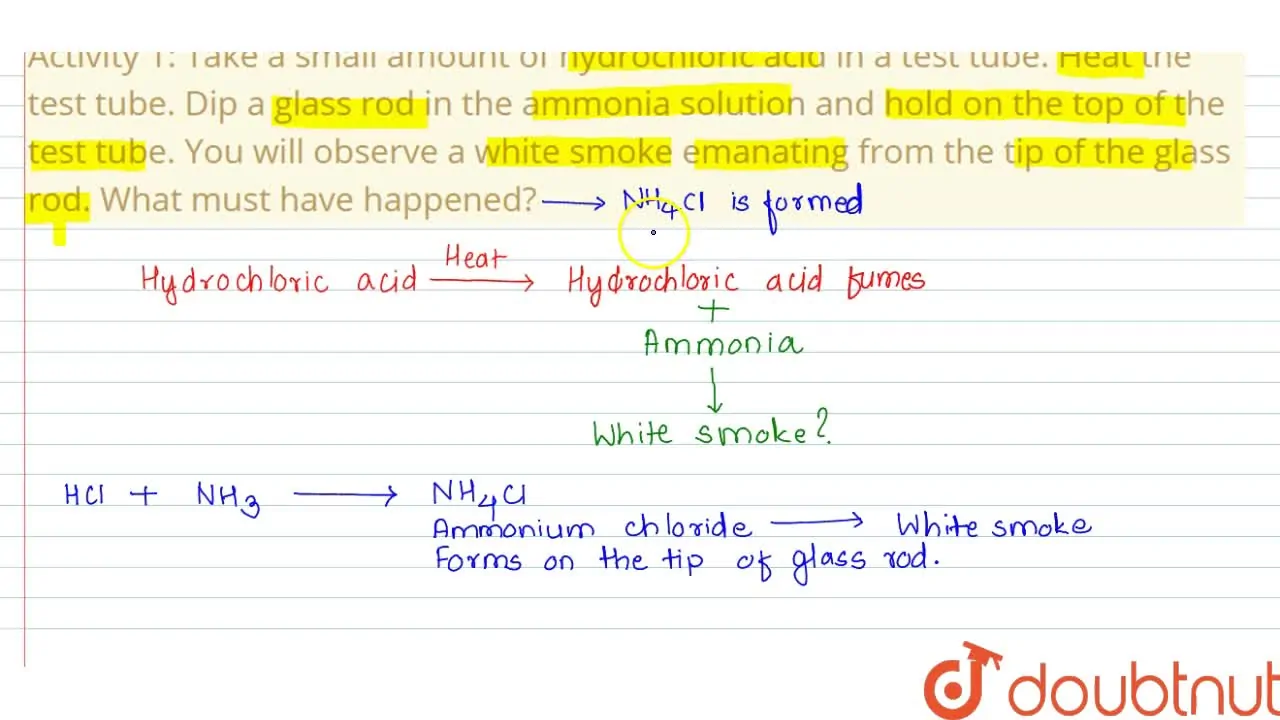 Activity 1: Take a small amount of hydrochloric acid in a test tube. Heat the
test tube. Dip a glass rod in the ammonia solution and hold on the top of the
test tube. You will observe a white smoke emanating from the tip of the glass
rod. What must have happened? → NH₄Cl is formed
Hydrochloric acid Heat → Hydrochloric acid fumes
+
Ammonia
↓
White smoke?
HCl + NH₃ → NH₄Cl
Ammonium chloride → White smoke
Forms on the tip of glass rod.
doubtnut